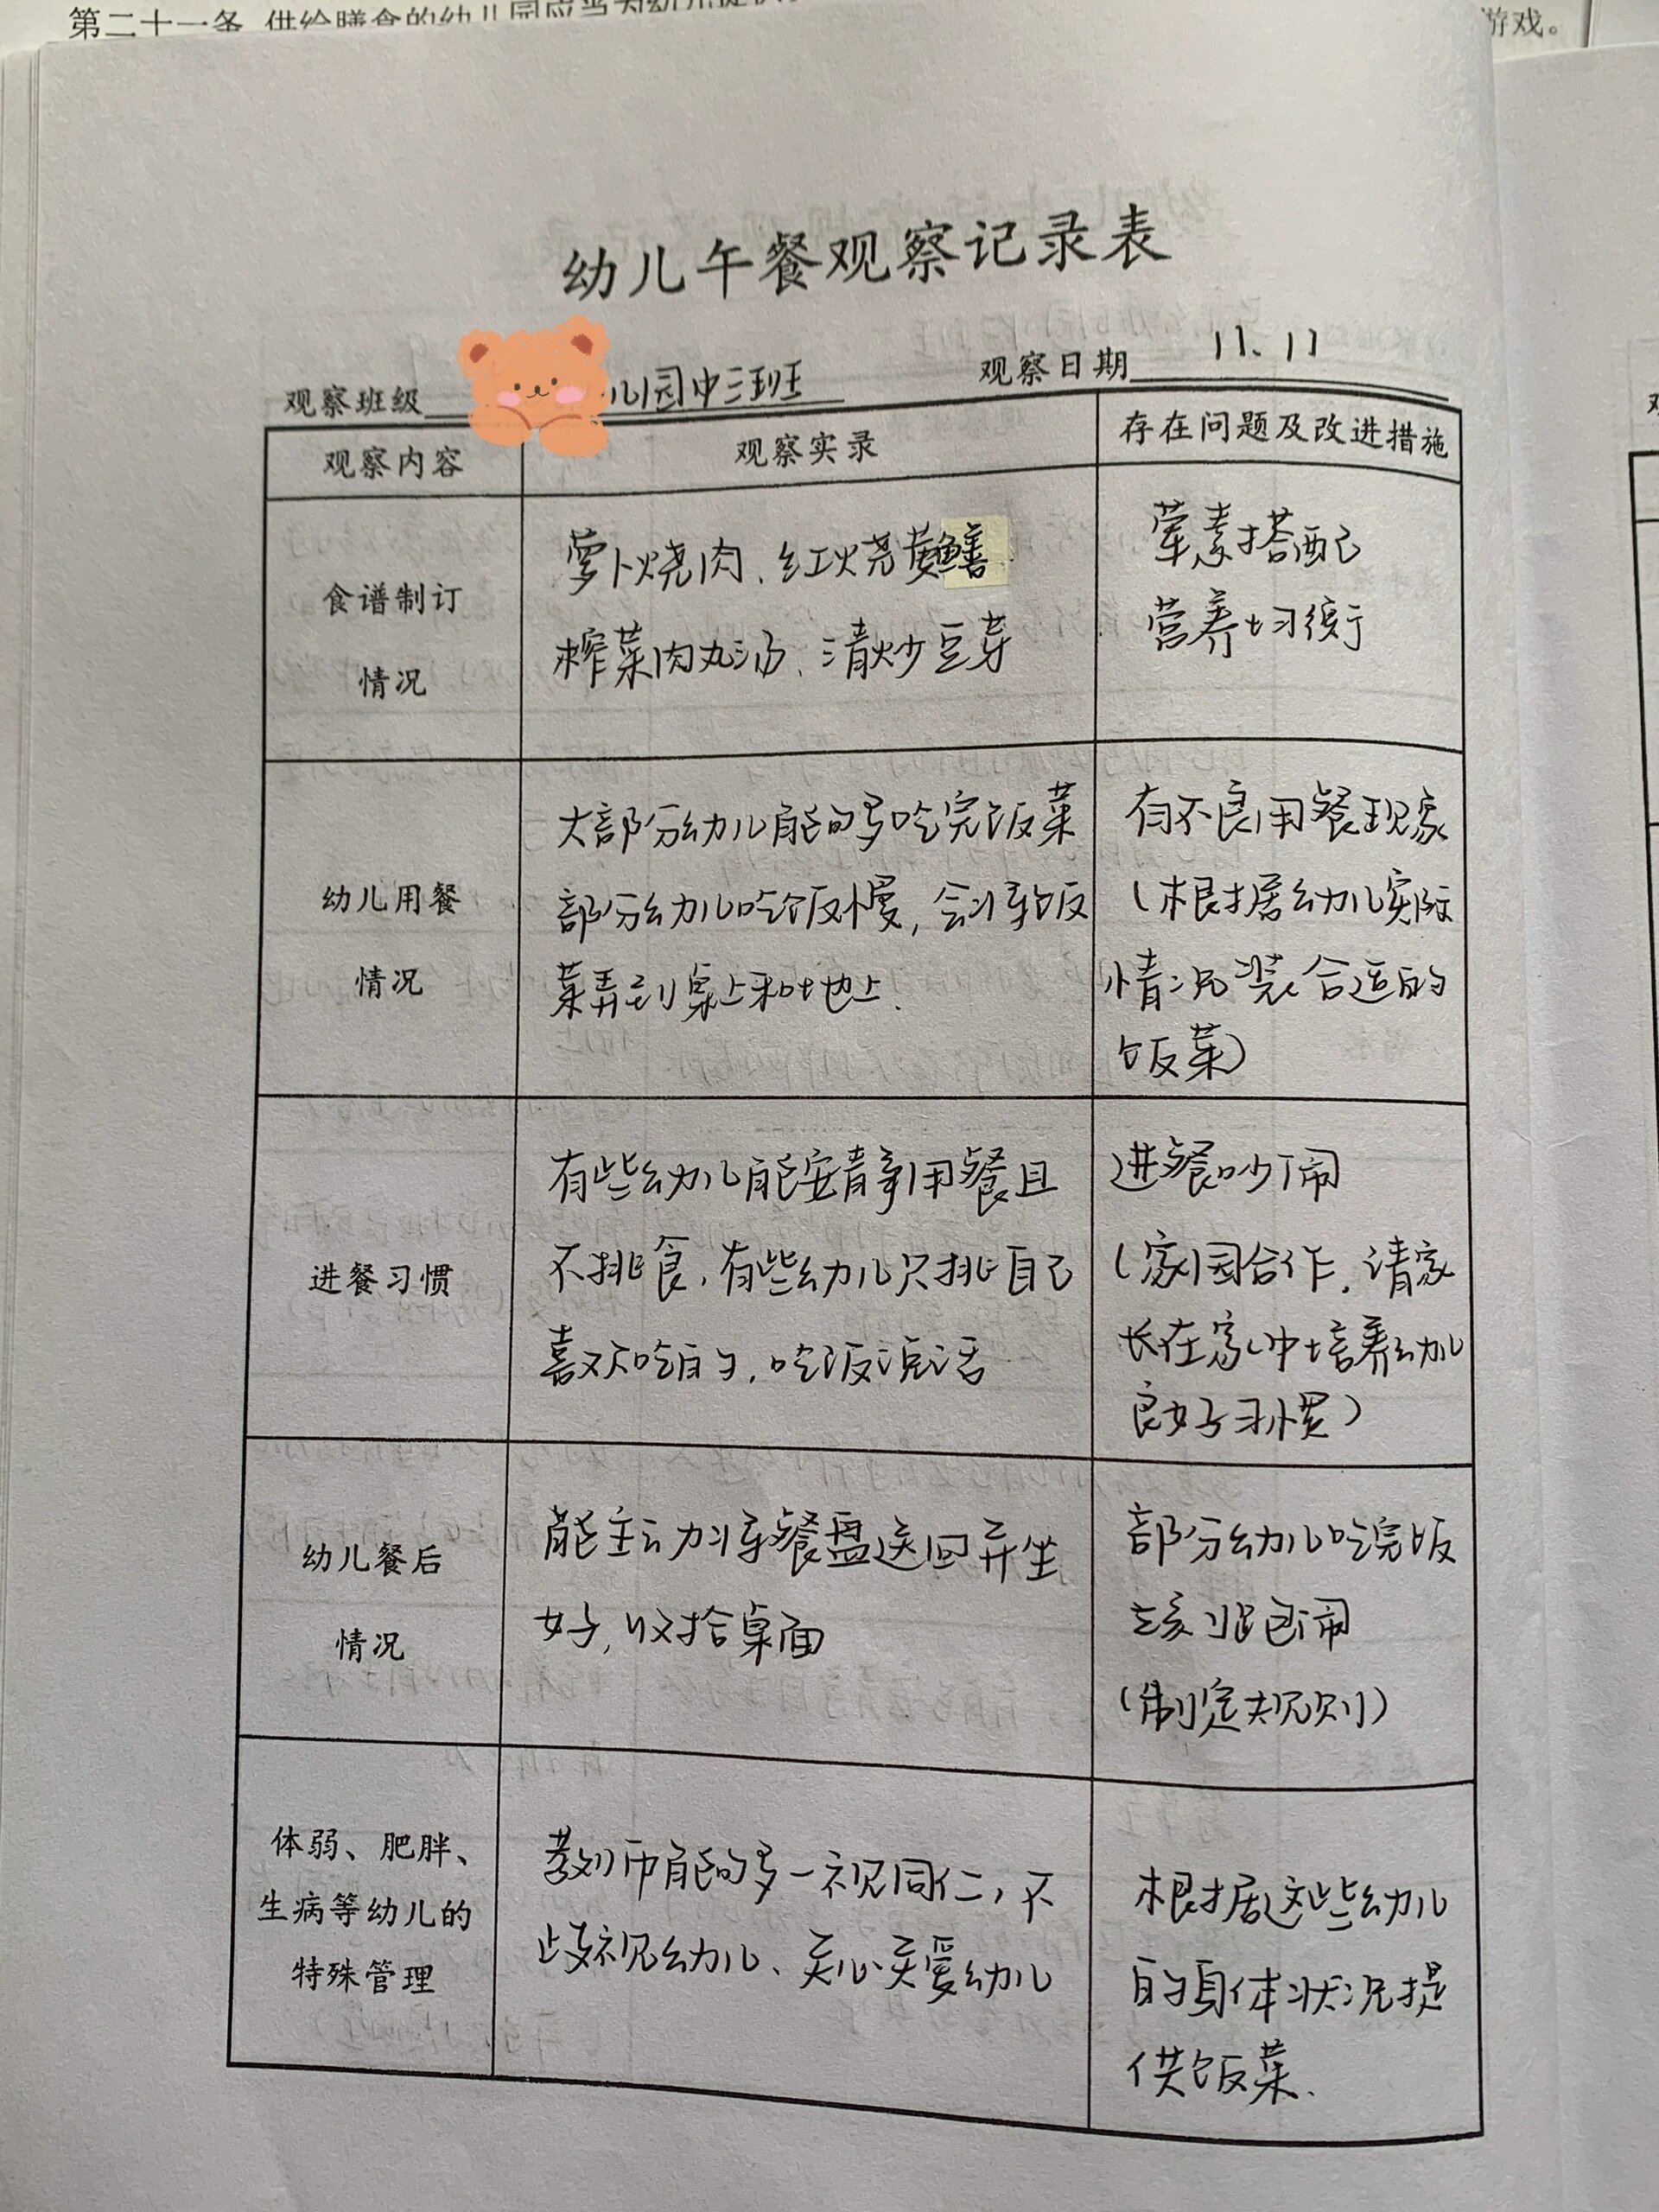 第二十一条 供给膳食的幼儿园应当为幼儿提供
游戏。
幼儿午餐观察记录表
观察班级 儿园中三班 观察日期 11.11
观察内容 观察实录 存在问题及改进措施
食谱制订
情况
萝卜烧肉、红烧黄鳝
榨菜肉丸汤、清炒豆芽
荤素搭配
营养均衡
幼儿用餐
情况
大部分幼儿能够吃完饭菜
部分幼儿吃饭慢，会将饭
菜弄到桌上和地上.
有不良用餐现象
（根据幼儿实际
情况装合适的
饭菜）
进餐习惯
有些幼儿能安静用餐且
不挑食，有些幼儿只挑自己
喜欢吃的，吃饭说话
进餐吵闹
（家园合作，请家
长在家中培养幼儿
良好习惯）
幼儿餐后
情况
能主动将餐盘送回并坐
好，收拾桌面
部分幼儿吃完饭
玩闹
（制定规则）
体弱、肥胖、
生病等幼儿的
特殊管理
教师能够一视同仁，不
歧视幼儿、关心关爱幼儿
根据这些幼儿
的身体状况提
供饭菜.